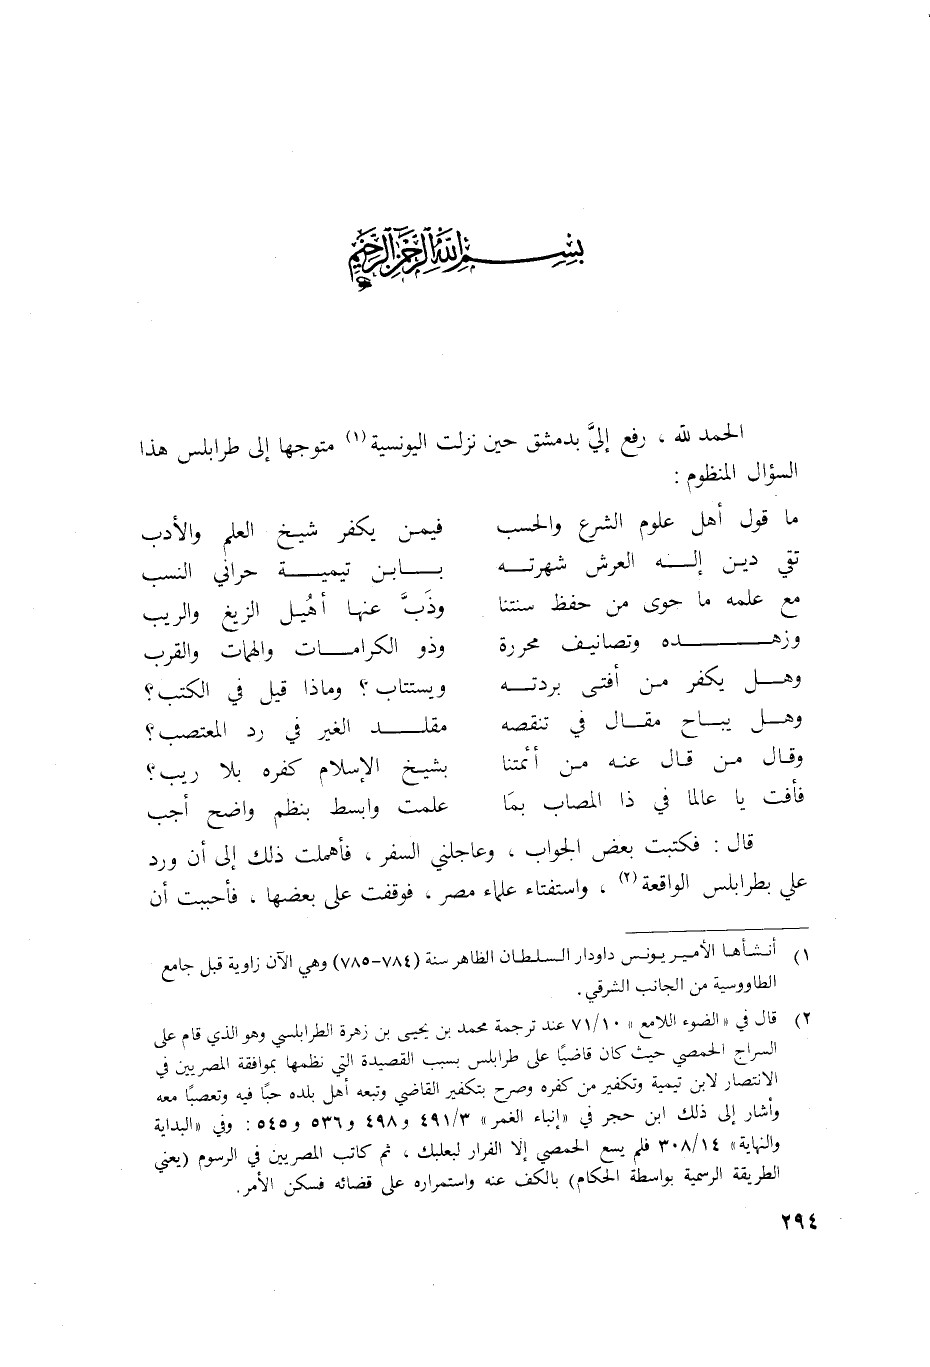 بسم الله الرحمن الرحيم
الحمد لله ، رفع إليَّ بدمشق حين نزلت اليونسية (١) متوجها إلى طرابلس هذا
السؤال المنظوم :
ما قول أهل علوم الشرع والحسب فيمن يكفر شيخ العلم والأدب
تقي دين إلـه العرش شهرتـه بـابن تيميـة حراني النسب
مع علمه ما حوى من حفظ سنتنا وذَبَّ عنها أُهَيل الزيغ والريب
وزهـده وتصانيف محررة وذو الكرامـات والهمات والقرب
وهـل يكفر من أفتى بردتـه ويستتاب ؟ وماذا قيل في الكتب ؟
وهـل يبـاح مقـال في تنقصه مقلـد الغير في رد المعتصب ؟
وقـال مـن قال عنه من أئمتنا بشيخ الإسلام كفره بلا ريب ؟
فأفت يا عالما في ذا المصاب بمَا علمت وابسط بنظم واضح أجب
قال : فكتبت بعض الجواب ، وعاجلني السفر ، فأهملت ذلك إلى أن ورد
علي بطرابلس الواقعة (٢) ، واستفتاء علماء مصر ، فوقفت على بعضها ، فأحببت أن
١) أنشأها الأمير يونس داودار السلطان الظاهر سنة (٧٨٤-٧٨٥) وهي الآن زاوية قبل جامع
الطاووسية من الجانب الشرقي .
٢) قال في « الضوء اللامع » ٧١/١٠ عند ترجمة محمد بن يحيى بن زهرة الطرابلسي وهو الذي قام على
السراج الحمصي حيث كان قاضيًا على طرابلس بسبب القصيدة التي نظمها بموافقة المصريين في
الانتصار لابن تيمية وتكفير من كفره وصرح بتكفير القاضي وتبعه أهل بلده حبًا فيه وتعصبًا معه
وأشار إلى ذلك ابن حجر في «إنباء الغمر» ٤٩١/٣ و٤٩٨ و٥٣٦ و٥٤٥ : وفي «البداية
والنهاية» ٣٠٨/١٤ فلم يسع الحمصي إلا الفرار لبعلبك ، ثم كاتب المصريين في الرسوم (يعني
الطريقة الرسمية بواسطة الحكام) بالكف عنه واستمراره على قضائه فسكن الأمر .
٢٩٤